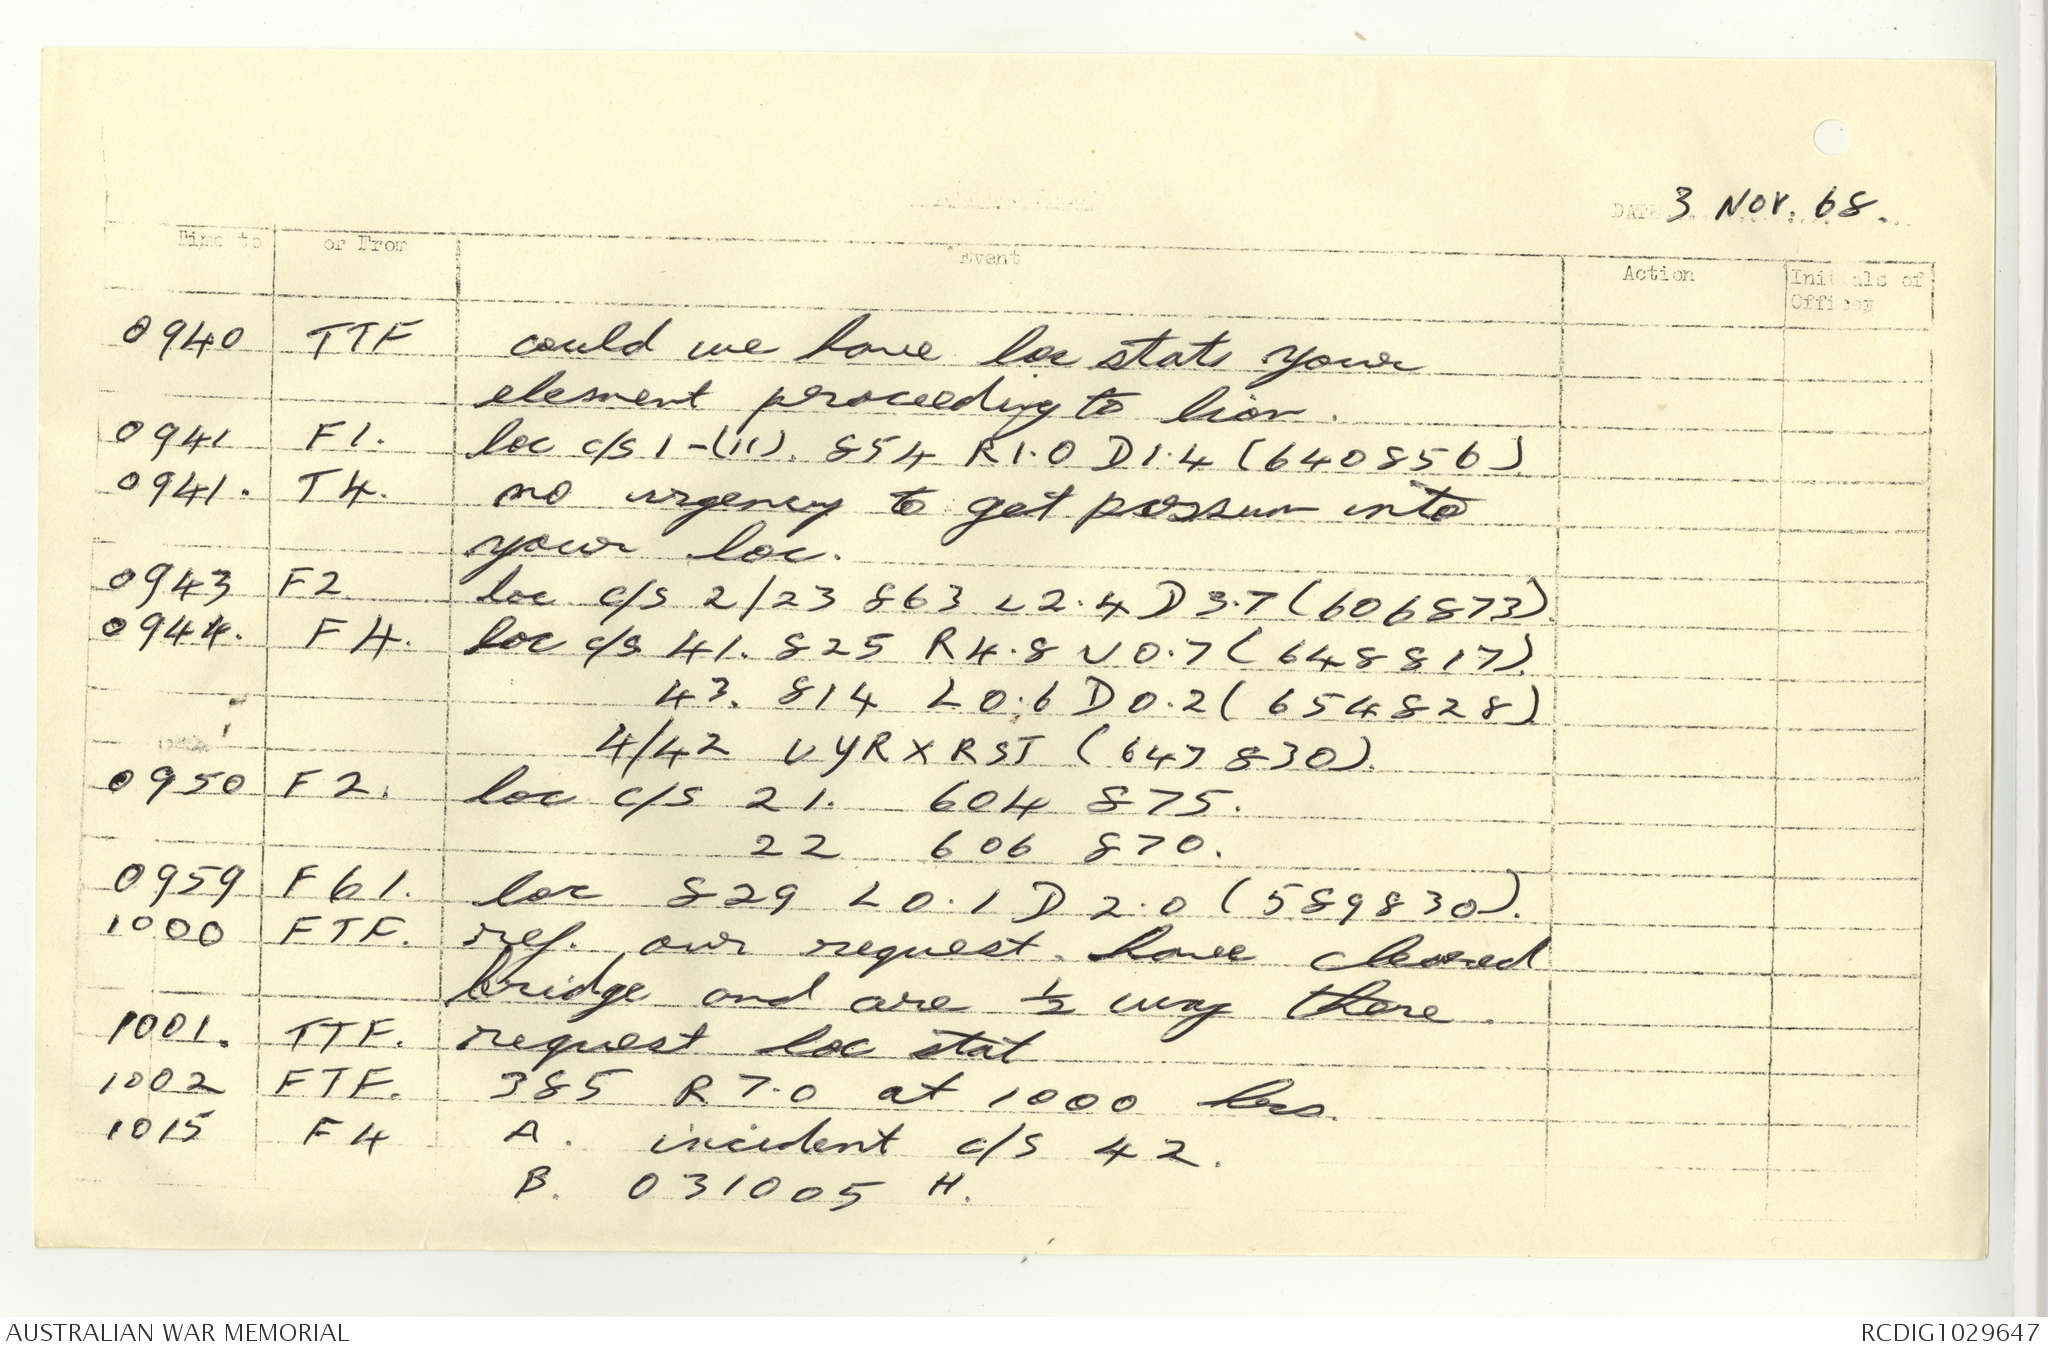 DATE 3 Nov. 68.
Time to or From Event Action Initials of Officer
0940 TTF could we have loc stats your
element proceeding to lion.
0941 F1. loc c/s 1-(11). 854 R1.0 D1.4 (640856)
0941. T4. no urgency to get possum into
your loc.
0943 F2. loc c/s 2/23 863 L2.4 D3.7 (606873).
0944. F4. loc c/s 41. 825 R4.8 U0.7 (648817).
43. 814 L0.6 D0.2 (654828)
4/42 UYRXRST (647830).
0950 F2. loc c/s 21. 604 875.
22 606 870.
0959 F61. loc 829 L0.1 D2.0 (589830).
1000 FTF. ref. our request. have cleared
bridge and are ½ way there.
1001. TTF. request loc stat
1002 FTF. 385 R7.0 at 1000 hrs.
1015 F4 A. incident c/s 42.
B. 031005 H.
AUSTRALIAN WAR MEMORIAL
RCDIG1029647